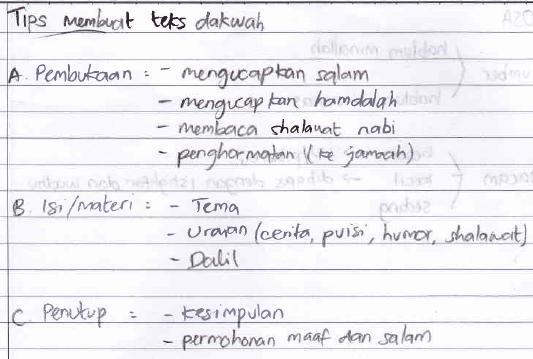 Tips membuat teks dakwah
A. Pembukaan : - mengucapkan salam
- mengucapkan hamdalah
- membaca shalawat nabi
- penghormatan (ke jamaah)
B. Isi/materi : - Tema
- Uraian (cerita, puisi, humor, shalawat)
- Dalil
C. Penutup : - kesimpulan
- permohonan maaf dan salam